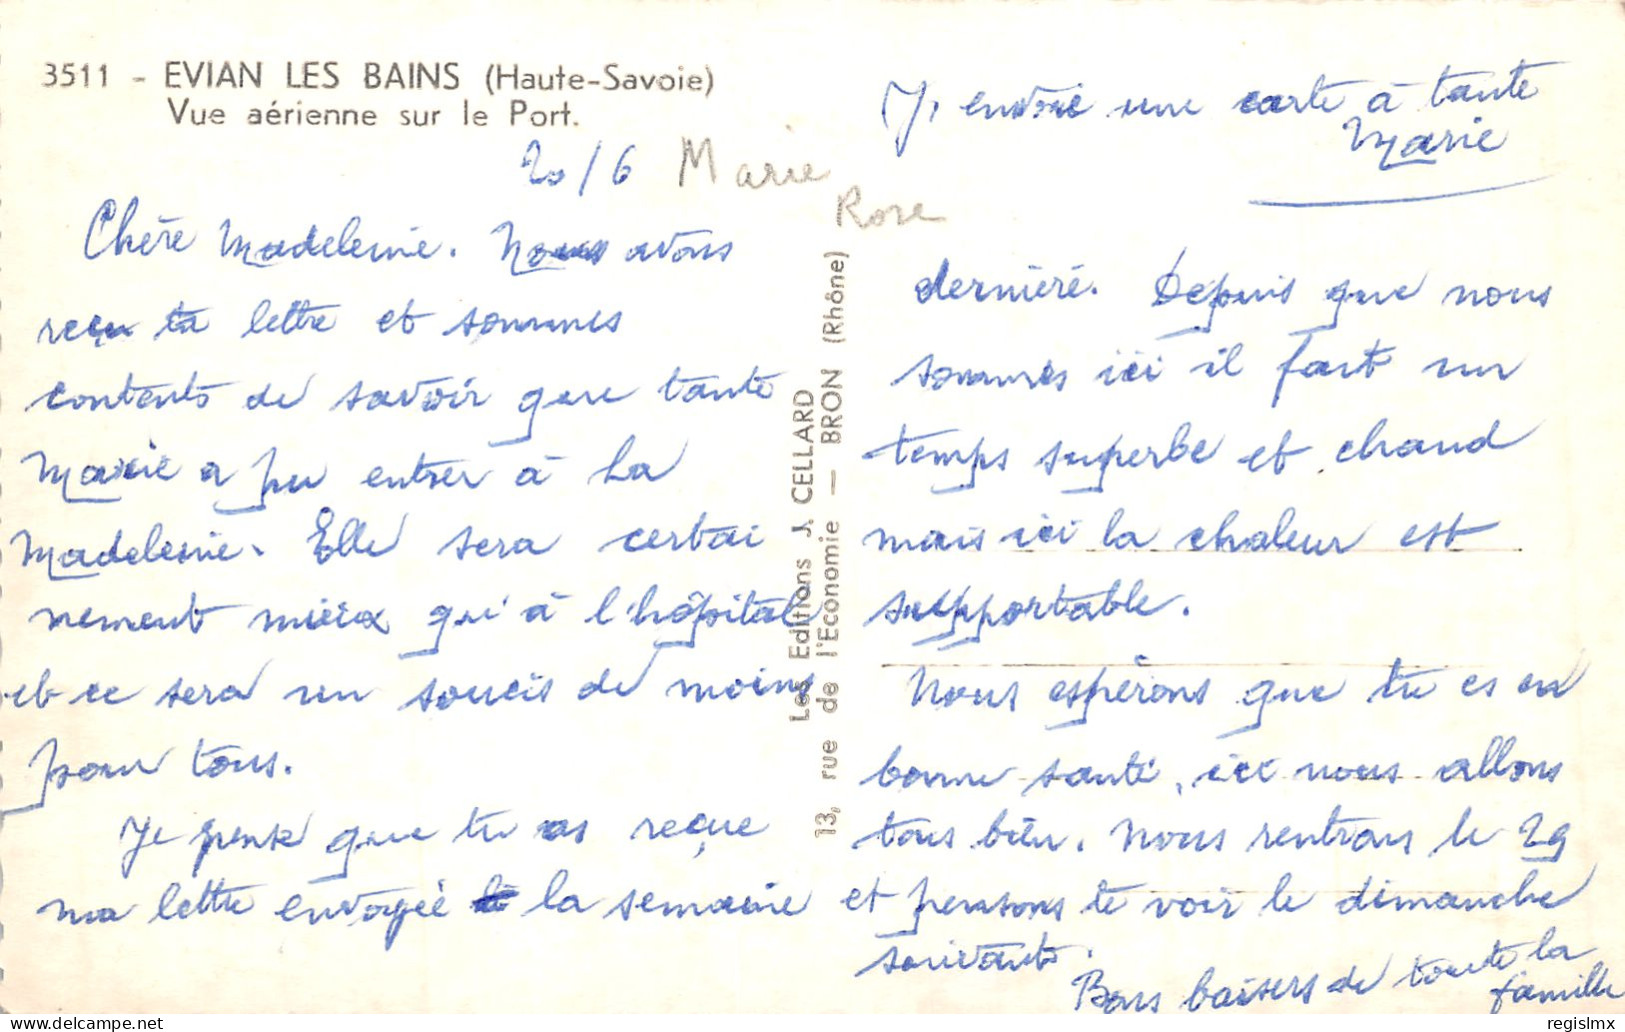 3511 - EVIAN LES BAINS (Haute-Savoie)
Vue aérienne sur le Port.
20/6 Marie
Rose
Chère Madeleine. Nous avons
reçu ta lettre et sommes
contents de savoir que tante
Marie a pu entrer à La
Madeleine. Elle sera certai
nement mieux qu'à l'hôpital
et ce sera un soucis de moins
pour tous.
Je pense que tu as reçue
ma lettre envoyée la semaine
Les Editions J. CELLARD
13, rue de l'Economie — BRON (Rhône)
J'envoie une carte à tante
Marie
dernière. Depuis que nous
sommes ici il fait un
temps superbe et chaud
mais ici la chaleur est
supportable.
Nous espérons que tu es en
bonne santé, ici nous allons
tous bien. Nous rentrons le 29
et pensons te voir le dimanche
suivant.
Bons baisers de toute la
famille
regislmx